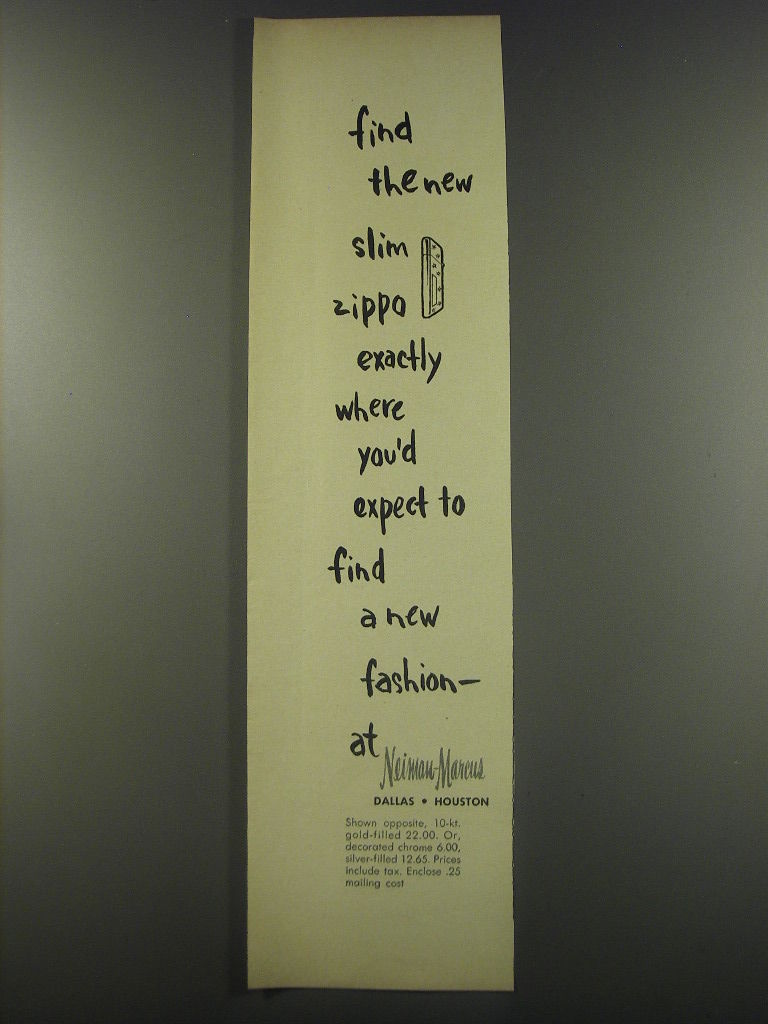 find
the new
slim
zippo
exactly
where
you'd
expect to
find
a new
fashion—
at
Neiman-Marcus
DALLAS • HOUSTON
Shown opposite, 10-kt.
gold-filled 22.00. Or,
decorated chrome 6.00,
silver-filled 12.65. Prices
include tax. Enclose .25
mailing cost